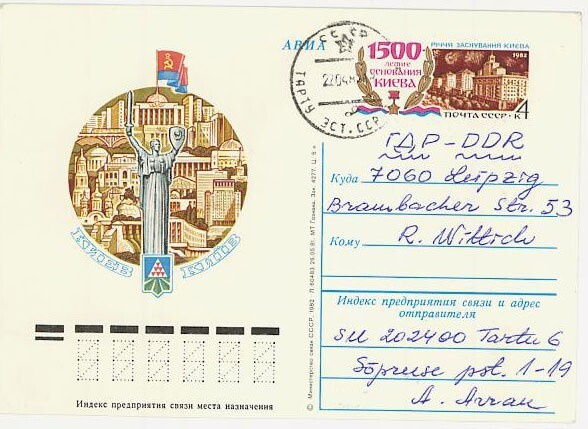 АВИА
РІЧЧЯ ЗАСНУВАННЯ КИЄВА
1500-летие
основания
КИЕВА
1982
ПОЧТА СССР·К4
СССР
22 04
ТАРТУ ЭСТ.ССР
КИЕВ КИЇВ
ГДР-DDR
Куда 7060 Leipzig
Brambacher Str. 53
Кому R. Wittich
Индекс предприятия связи и адрес
отправителя
SU 202400 Tartu 6
Sõpruse pst. 1-19
A. Arrau
Индекс предприятия связи места назначения
© Министерство связи СССР, 1982. Л 60483 26.05.81. МТ Гознака. Зак. 4277. Ц. 5 к.